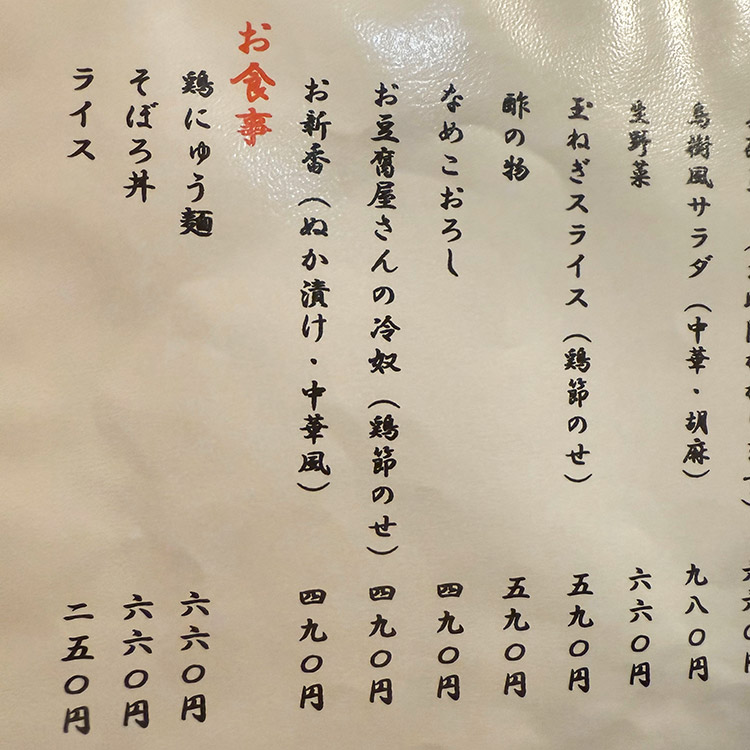 鳥樹風サラダ（中華・胡麻） 九八〇円
生野菜 六六〇円
玉ねぎスライス（鶏節のせ） 五九〇円
酢の物 五九〇円
なめこおろし 四九〇円
お豆腐屋さんの冷奴（鶏節のせ） 四九〇円
お新香（ぬか漬け・中華風） 四九〇円
お食事
鶏にゅう麺 六六〇円
そぼろ丼 六六〇円
ライス 二五〇円